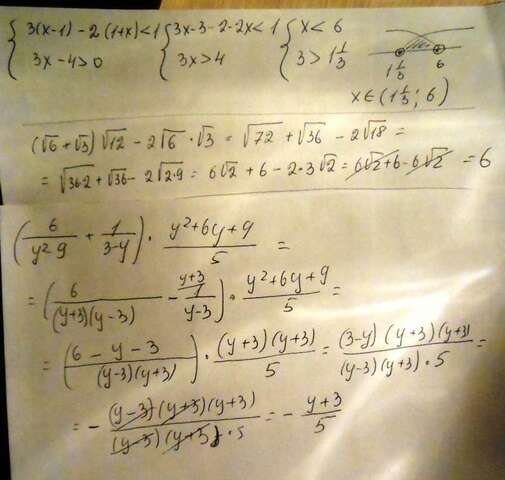 {3(x-1)-2(1+x)<1 {3x-3-2-2x<1 {x<6
{3x-4>0 {3x>4 {3>1 1/3 1 1/3 6
x∈(1 1/3; 6)
(√6+√3)√12-2√6·√3=√72+√36-2√18=
=√36·2+√36-2√2·9=6√2+6-2·3√2=6√2+6-6√2=6
(6/(y²-9)+1/(3-y))·(y²+6y+9)/5=
=(6/((y+3)(y-3))-1/(y-3) y+3)·(y²+6y+9)/5=
=((6-y-3)/((y-3)(y+3)))·((y+3)(y+3))/5=((3-y)(y+3)(y+3))/((y-3)(y+3)·5)=
=-((y-3)(y+3)(y+3))/((y-3)(y+3)·5)=-(y+3)/5